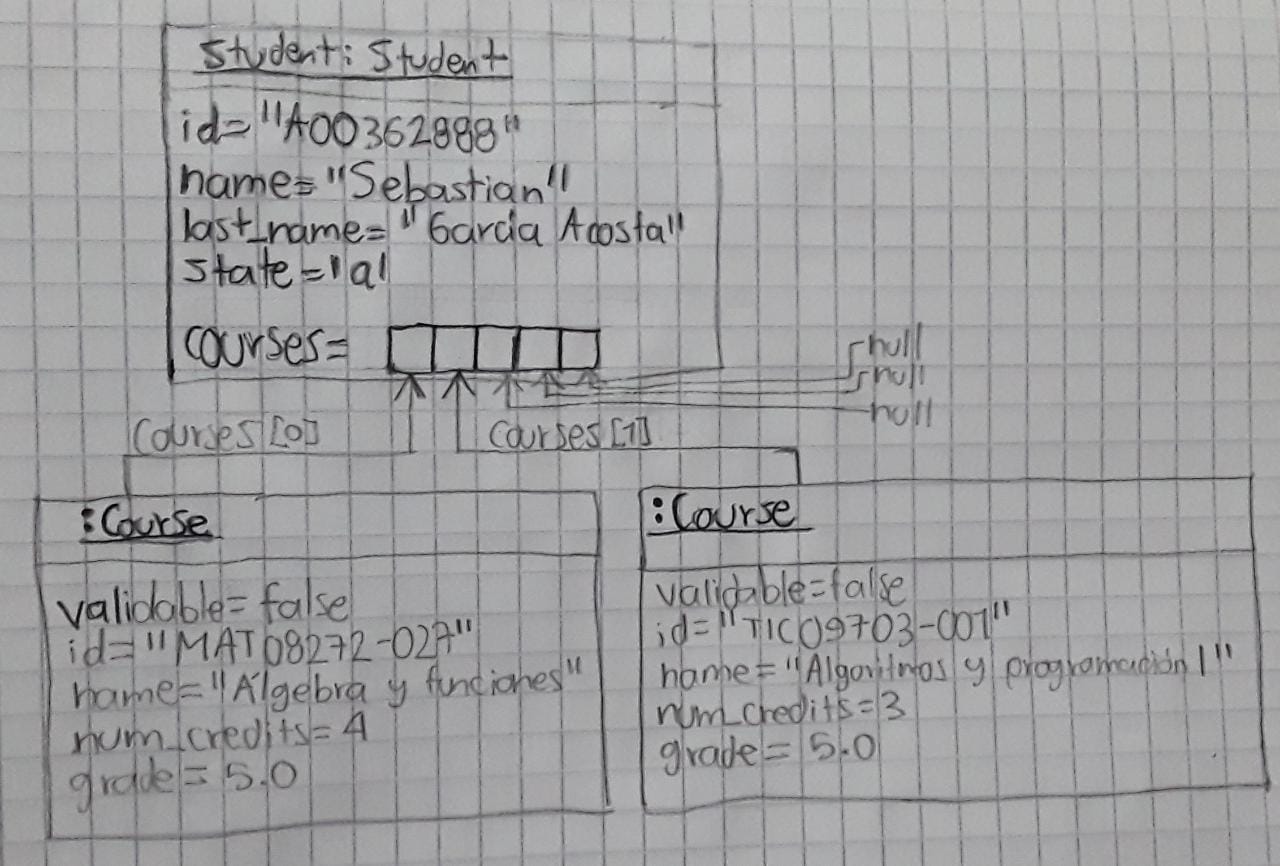 Student: Student
id="A00362888"
name="Sebastian"
last_name="Garcia Acosta"
state='a'
courses=
null
null
null
courses[0]
courses[1]
:Course
validable=false
id="MAT08272-027"
name="Álgebra y funciones"
num_credits=4
grade=5.0
:Course
validable=false
id="TIC09703-001"
name="Algoritmos y programación 1"
num_credits=3
grade=5.0